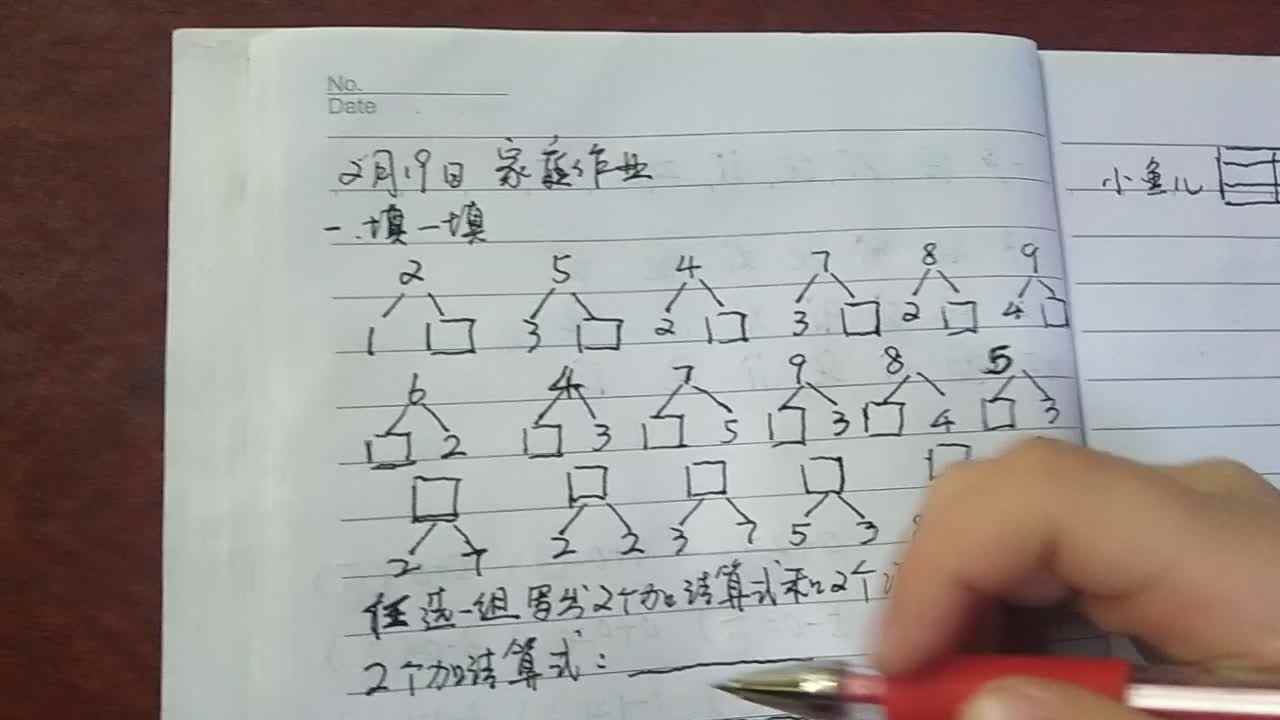 No.
Date
2月19日 家庭作业
小鱼儿
一.填一填
2 5 4 7 8 9
1 □ 3 □ 2 □ 3 □ 2 □ 4 □
6 4 7 9 8 5
□ 2 □ 3 □ 5 □ 3 □ 4 □ 3
□ □ □ □ □
2 7 2 2 3 7 5 3
任选一组写出2个加法算式和2个
2个加法算式：